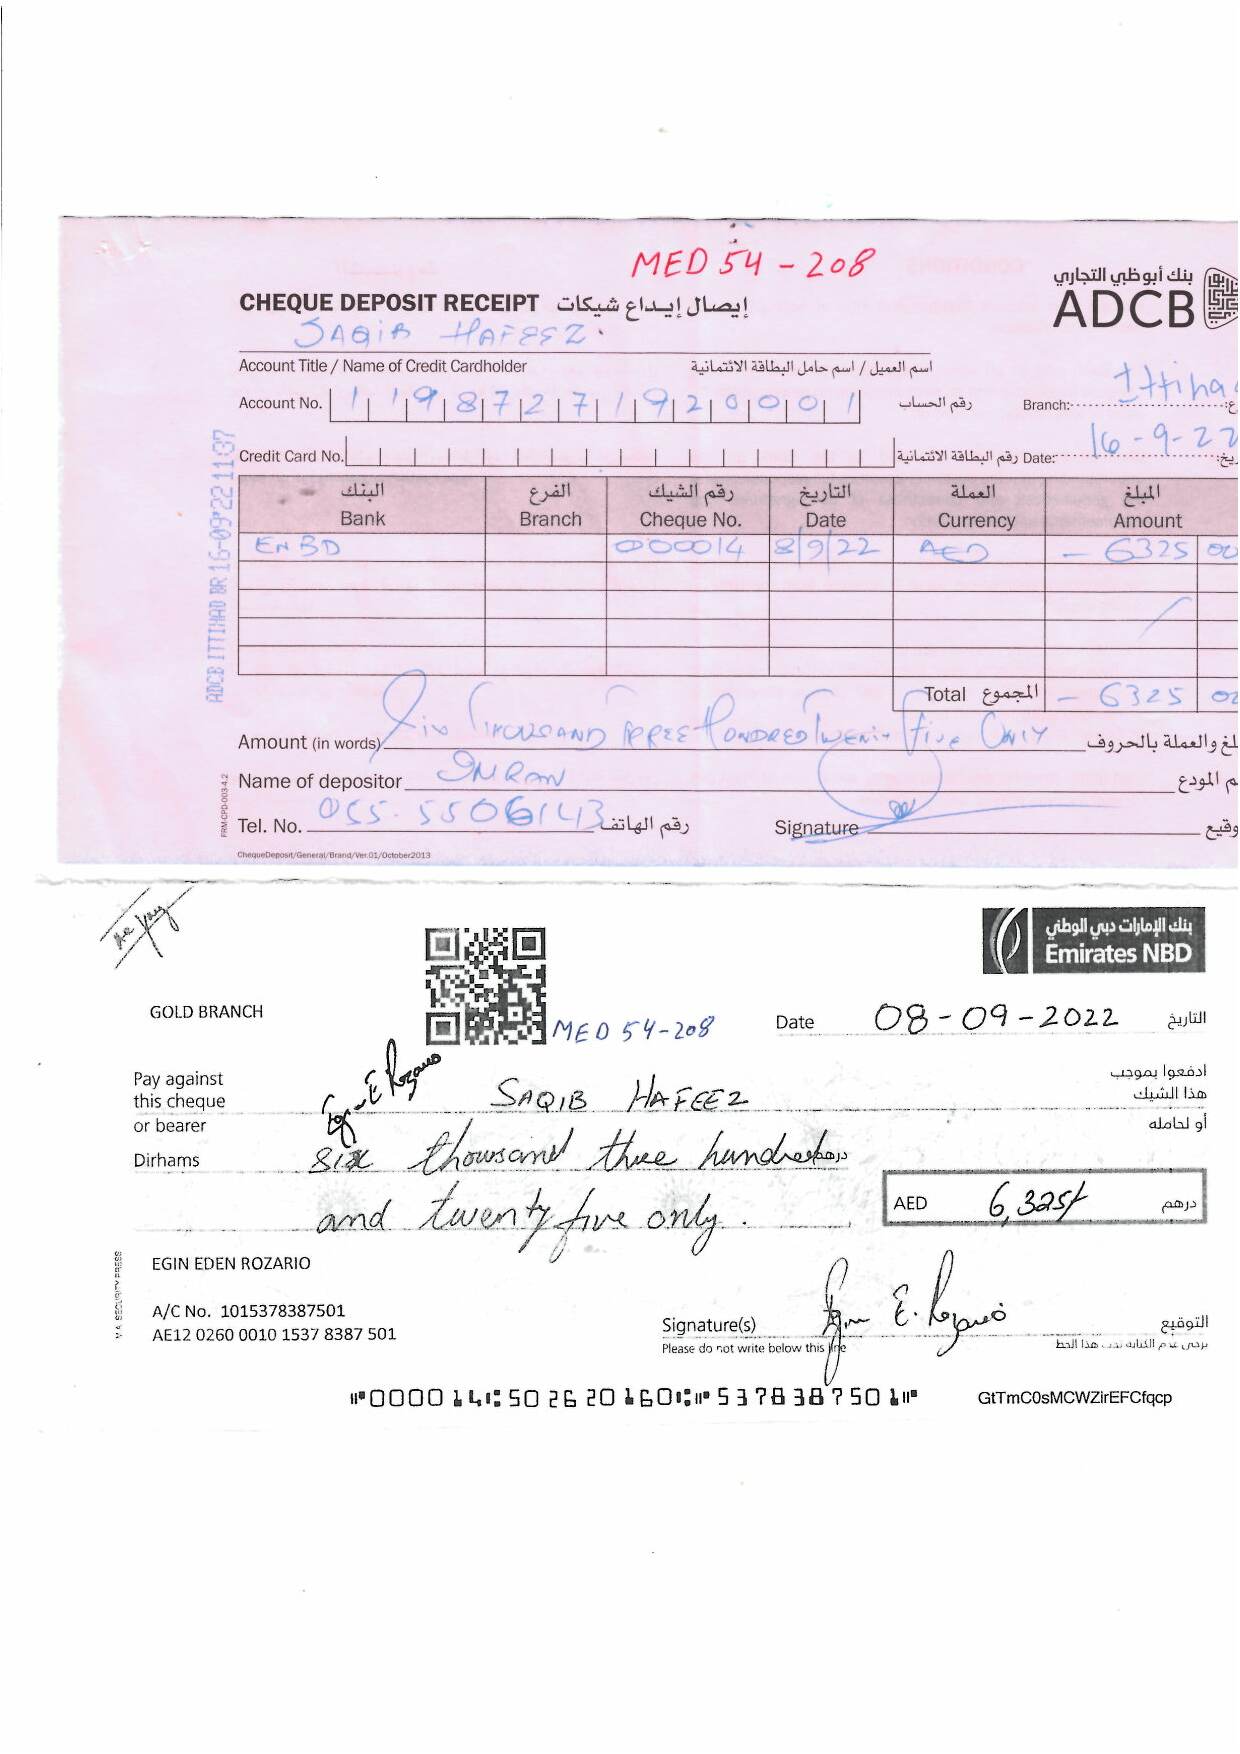 MED 54 - 208
بنك أبوظبي التجاري
ADCB
CHEQUE DEPOSIT RECEIPT إيصال إيداع شيكات
SAQIB HAFEEZ
Account Title / Name of Credit Cardholder اسم العميل / اسم حامل البطاقة الائتمانية
Account No. 11987271920001 رقم الحساب Branch: Ittiha
Credit Card No. رقم البطاقة الائتمانية Date: 16-9-22
ADCB ITTIHAD BR 16-09'22 11:37
البنك الفرع رقم الشيك التاريخ العملة المبلغ
Bank Branch Cheque No. Date Currency Amount
ENBD 000014 8/9/22 AED - 6325 00
Total المجموع - 6325 00
Amount (in words) Six Thousand Three Hundred Twenty Five Only لغ والعملة بالحروف
Name of depositor Imran م المودع
Tel. No. 055-5506143 رقم الهاتف Signature وقيع
FRM-CPD-003-4.2
ChequeDeposit/General/Brand/Ver.01/October2013
بنك الإمارات دبي الوطني
Emirates NBD
GOLD BRANCH
MED 54-208
Date 08-09-2022 التاريخ
Pay against ادفعوا بموجب
this cheque SAQIB HAFEEZ هذا الشيك
or bearer أو لحامله
Dirhams six thousand three hundred درهم
and twenty five only.
AED 6,325/ درهم
EGIN EDEN ROZARIO
A/C No. 1015378387501
AE12 0260 0010 1537 8387 501
Signature(s) Egin E. Rozario التوقيع
Please do not write below this line
⑈000014⑆502620160⑆⑈5378387501⑈ GtTmC0sMCWZirEFCfqcp